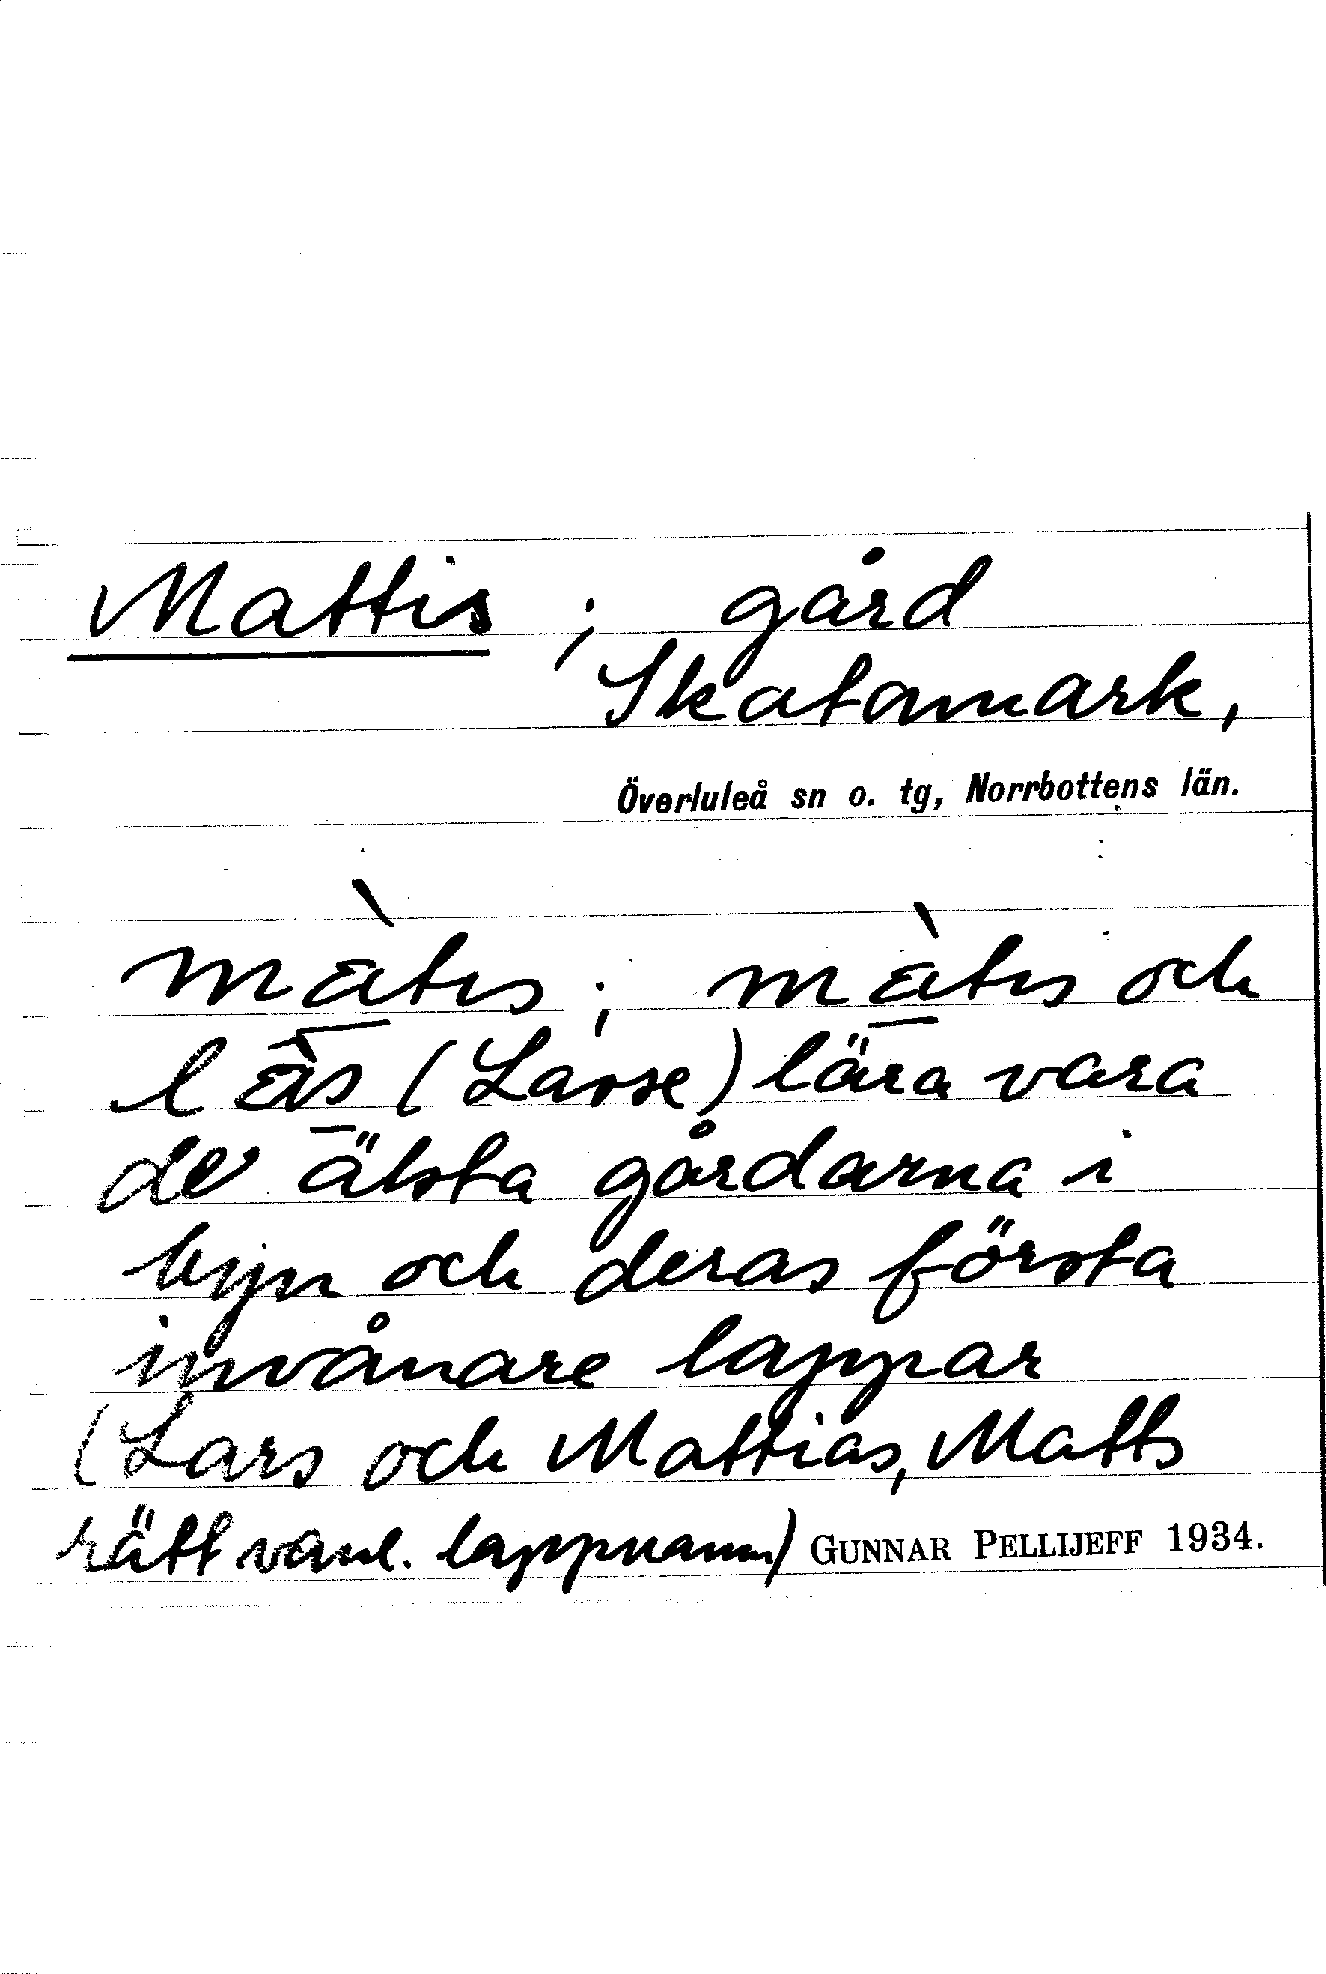 Mattis; gård
Skatamark,
Överluleå sn o. tg, Norrbottens län.
màtıs; màtıs och
làs (Lasse) lära vara
de älsta gårdarna i
byn och deras första
invånare lappar
(Lars och Mattias, Matts
rätt vanl. lappnamn) GUNNAR PELLIJEFF 1934.